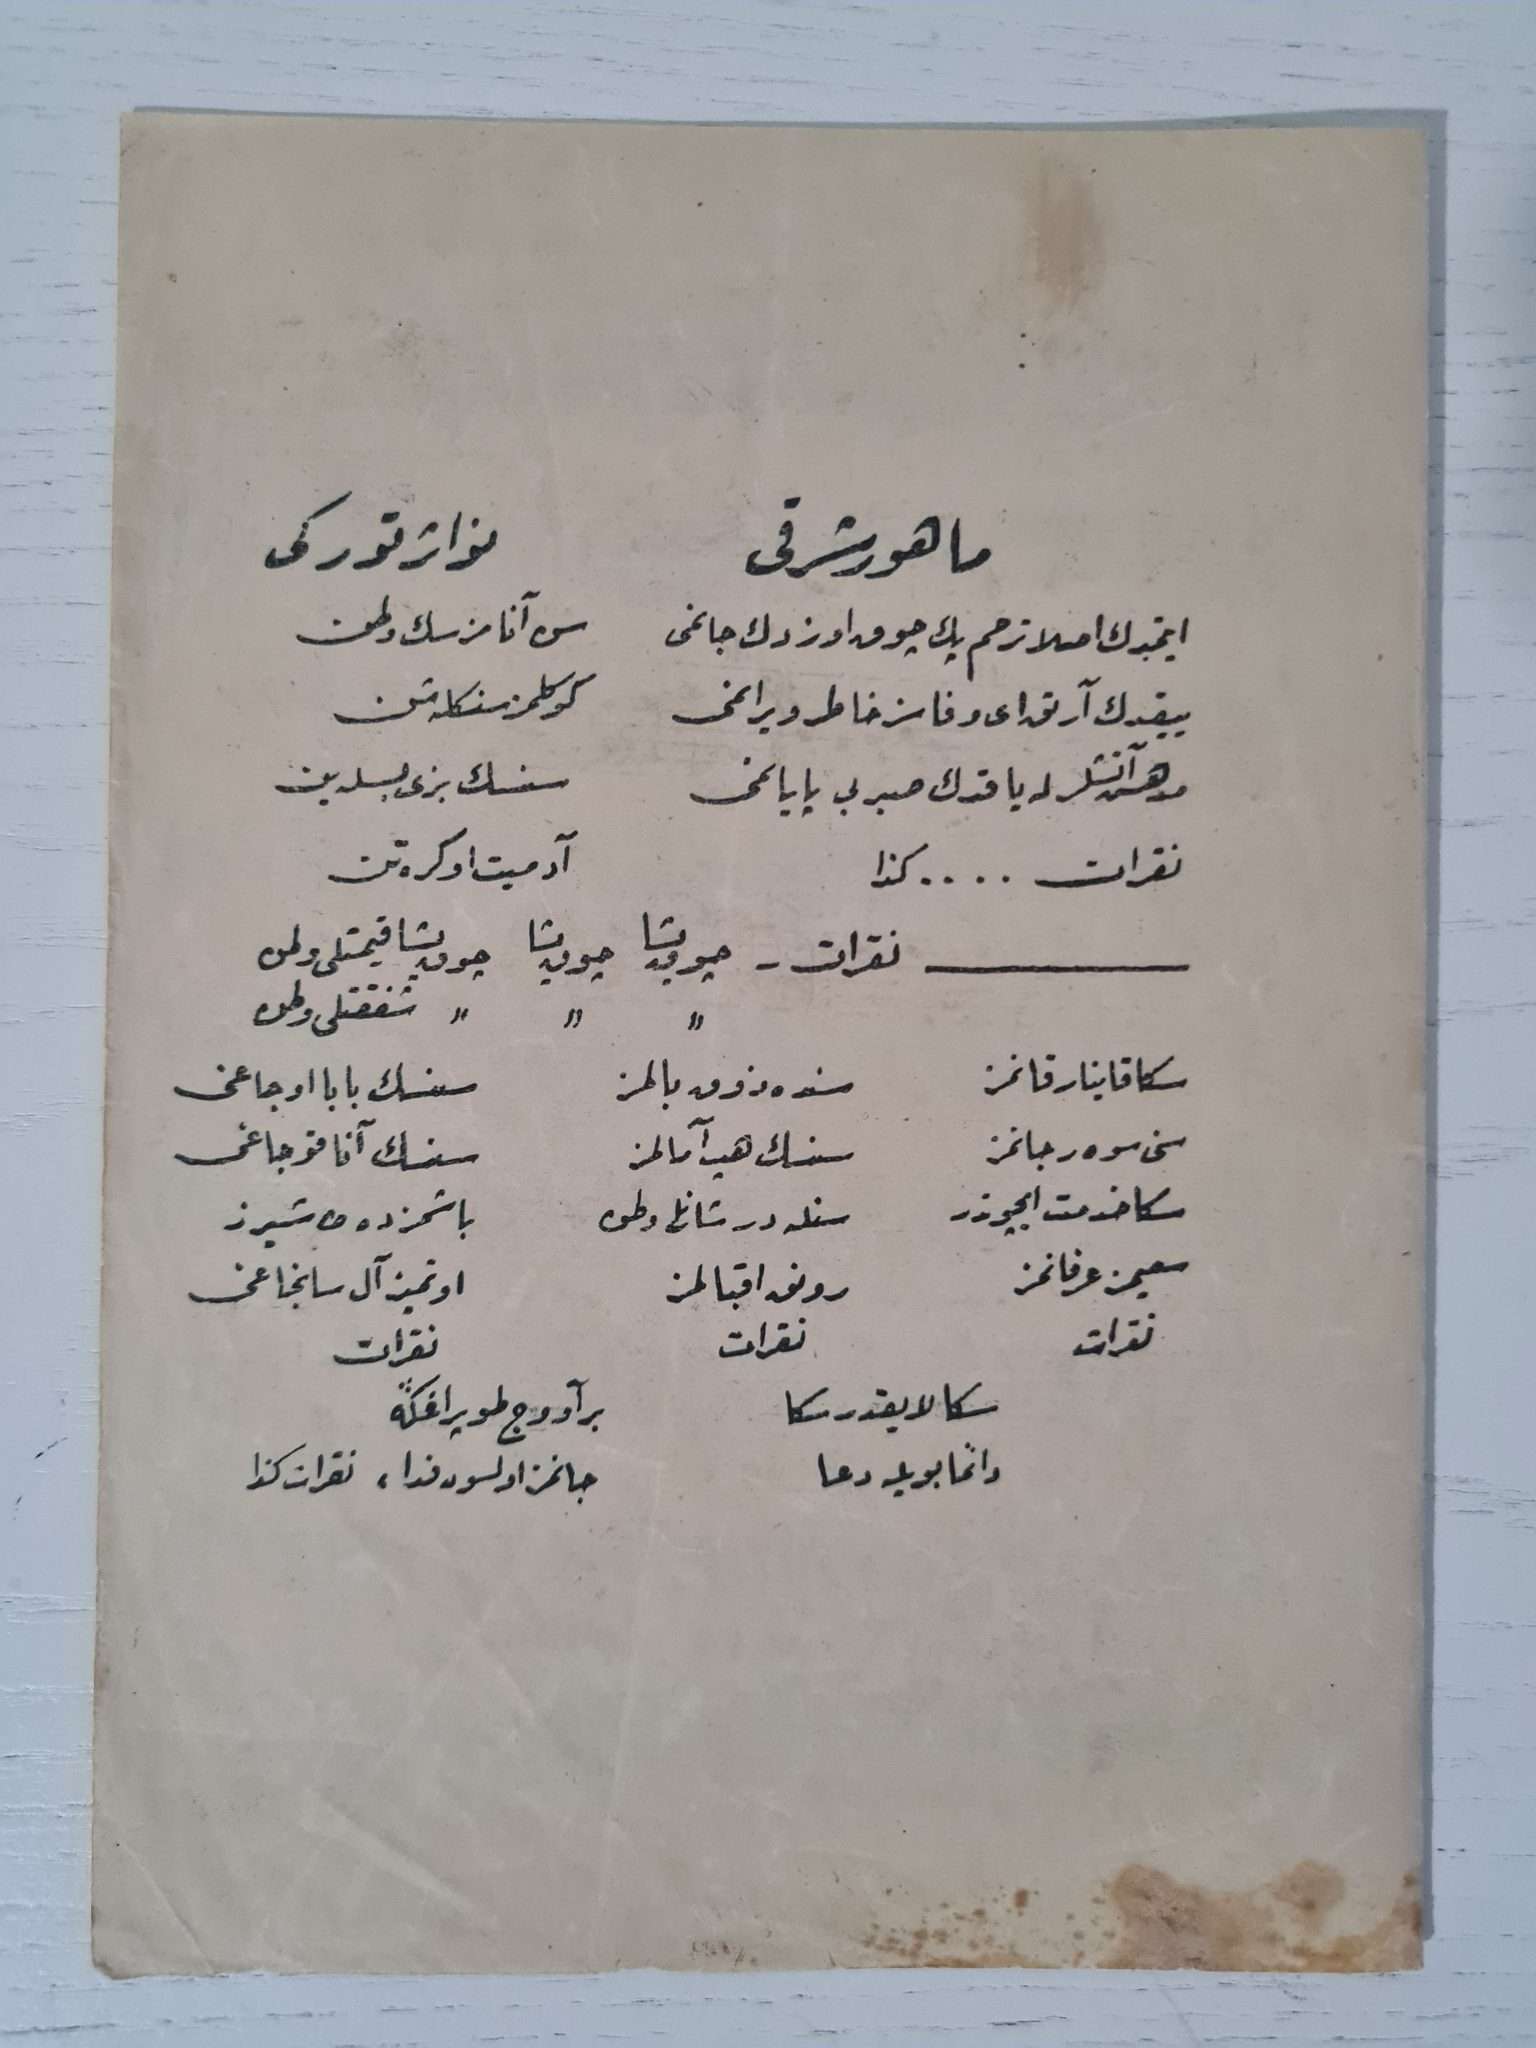 ماهور شرقی
نواثر تورکی
ایتمدك اصلا ترحم پك چوق اوزدك جانمی
سن آنامزسك وطن
ییقدك آرتق ای وفاسز خاطر ویرانمی
كوكلمز سنكله شن
مدهش آتشلرله یاقدك صبر بی پایانمی
سنسك بزی بسله ین
نقرات .... كذا
آدمیت اوكره تن
نقرات - چوق یشا چوق یشا چوق یشا قیمتلی وطن
〃 〃 〃 شفقتلی وطن
سكا قاینار قانمز
سنده ذوق بالمز
سنسك بابا اوجاغی
سنی سوه ر جانمز
سنسك هپ آمالمز
سنسك آنا قوجاغی
سكا خدمت ایچوندر
سنله در شانلی وطن
باشمزده طاشیرز
سعیمز عرفانمز
رونق اقبالمز
او تمیز آل سانجاغی
نقرات
نقرات
نقرات
سكا لایقدر سكا
بر آووج طوپراغكه
دائما بویله دعا
جانمز اولسون فدا، نقرات كذا